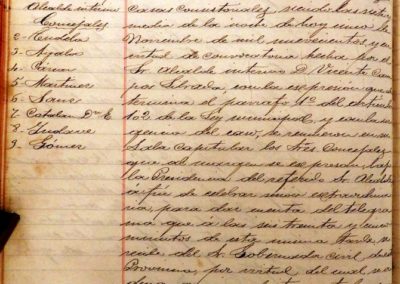 Alcalde interino
Concejales
2- Tudela
3- Ayala
5- Martinez
6- Sanz
7- Catalan Dn E
9- Gomez
casas consistoriales siendo las
media de la noche de hoy nueve de
Noviembre de mil novecientos y en
virtud de convocatoria hecha por el
Sr Alcalde interino D. Vicente Cam
pos Estrada, con la expresion que de
termina el parrafo 4º del articulo
102 de la Ley municipal y con la ur
gencia del caso, se reunieron en su
Sala capitular los Sres Concejales
que al margen se expresan, bajo
la Presidencia del referido Sr Alcalde
á fin de celebrar sesion extraordina
ria, para dar cuenta del telegra
ma que á las seis treinta y cinco
minutos de esta misma tarde, se
recibe del Sr Gobernador civil de esta
Provincia, por virtud del cual se